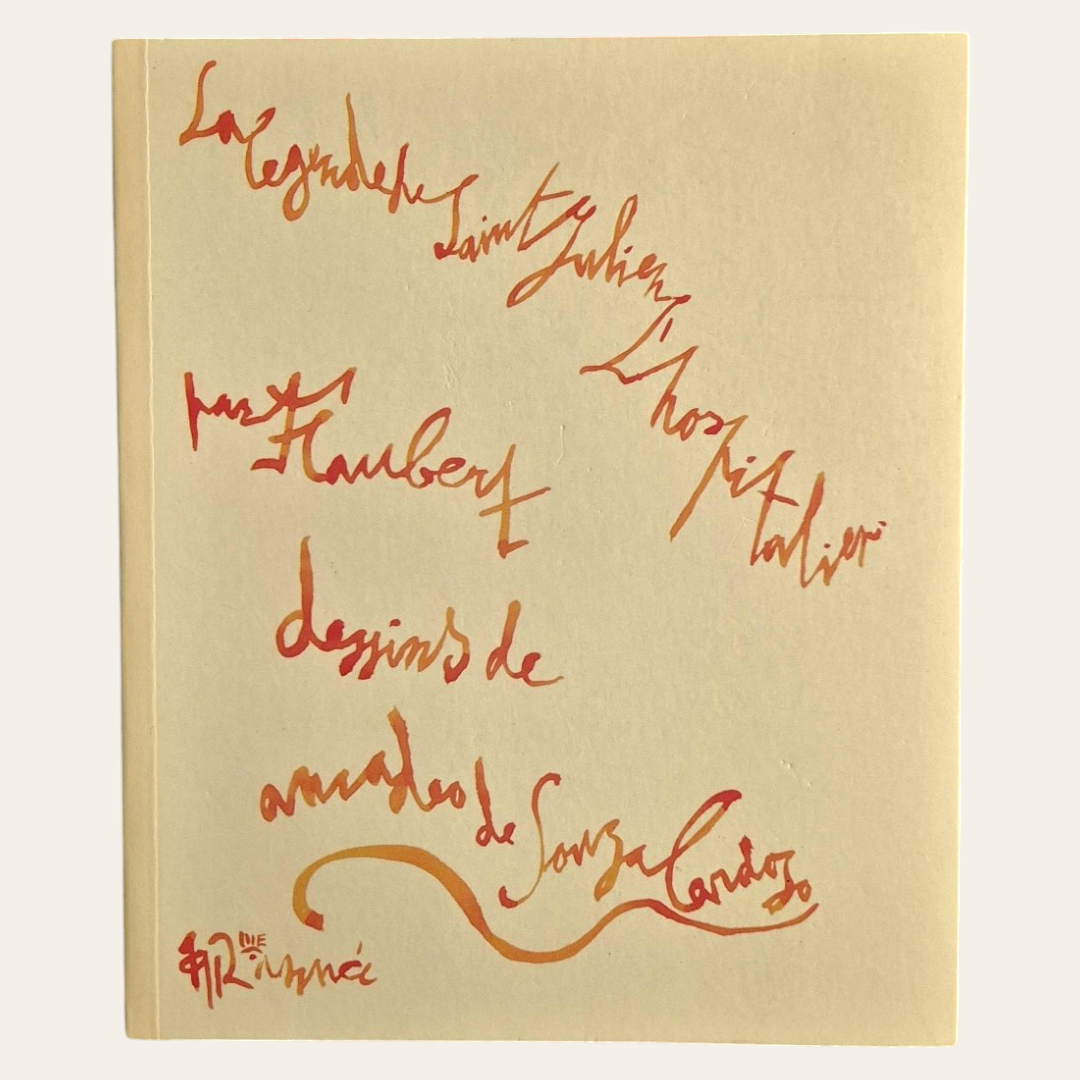 La Legende de Saint Julien
L'hospitalier
par Flaubert
dessins de
amadeo de Souza Cardozo